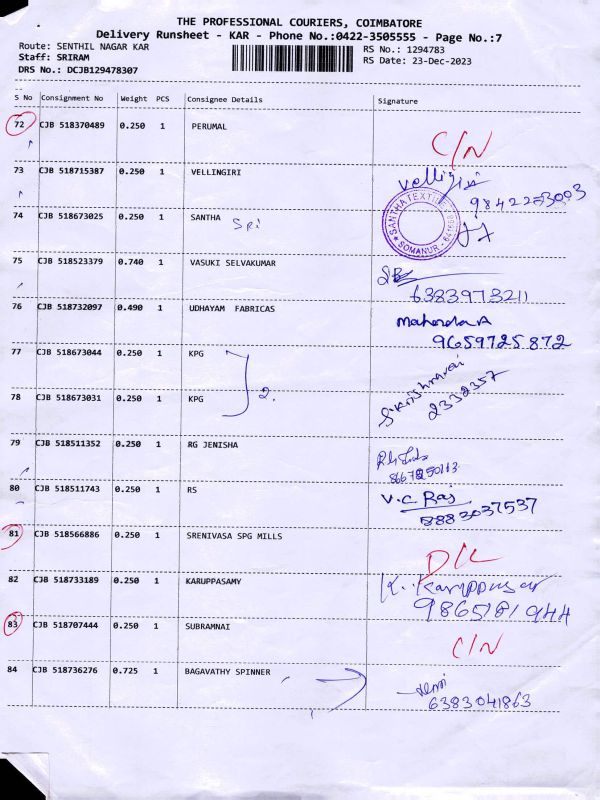 THE PROFESSIONAL COURIERS, COIMBATORE
Delivery Runsheet - KAR - Phone No.:0422-3505555 - Page No.:7
Route: SENTHIL NAGAR KAR RS No.: 1294783
Staff: SRIRAM RS Date: 23-Dec-2023
DRS No.: DCJB129478307
S No Consignment No Weight PCS Consignee Details Signature
72 CJB 518370489 0.250 1 PERUMAL C/N
73 CJB 518715387 0.250 1 VELLINGIRI
SANTHA TEXTILE SOMANUR
74 CJB 518673025 0.250 1 SANTHA Sri
75 CJB 518523379 0.740 1 VASUKI SELVAKUMAR
6383973211
76 CJB 518732097 0.490 1 UDHAYAM FABRICAS
9659725872
77 CJB 518673044 0.250 1 KPG
2.
2332357
78 CJB 518673031 0.250 1 KPG
79 CJB 518511352 0.250 1 RG JENISHA
80 CJB 518511743 0.250 1 RS V.C Raj
8883037537
81 CJB 518566886 0.250 1 SRENIVASA SPG MILLS D/L
82 CJB 518733189 0.250 1 KARUPPASAMY
83 CJB 518707444 0.250 1 SUBRAMNAI C/N
84 CJB 518736276 0.725 1 BAGAVATHY SPINNER
6383041863